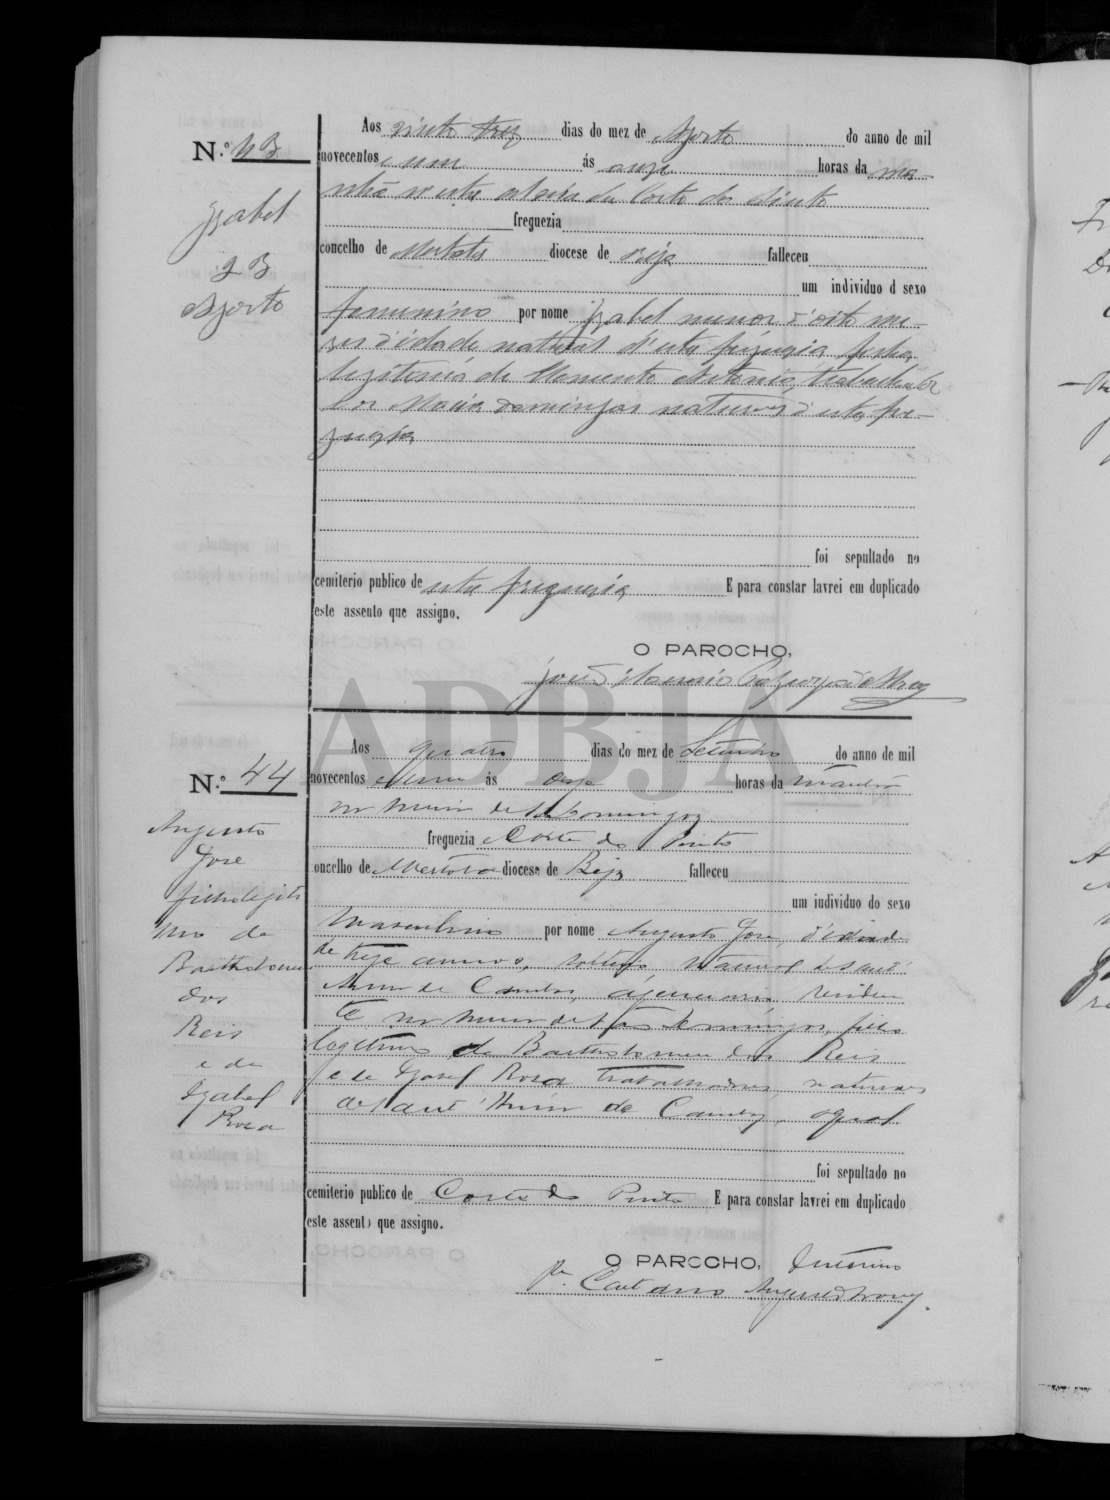 N.º 43
Izabel
23
Agosto
Aos vinte trez dias do mez de Agosto do anno de mil
novecentos e um ás onze horas da ma-
nhã n'esta aldeia da Corte do Pinto
freguezia
concelho de Mertola diocese de Beja falleceu
um individuo d sexo
femenino por nome Izabel menor d'oito me-
zes d'edade natural d'esta freguezia filha
legitima de Antonio trabalhador
Maria Domingas naturaes d'esta fre-
guezia
foi sepultado no
cemiterio publico de esta freguezia E para constar lavrei em duplicado
este assento que assigno.
O PAROCHO,
José
ADBJA
N.º 44
Augusto
José
filho legiti
mo de
Bartholomeu
dos
Reis
e de
Izabel
Rosa
Aos quatro dias do mez de Setembro do anno de mil
novecentos e um ás onze horas da manhã
na Mina de S. Domingos
freguezia Corte do Pinto
oncelho de Mertola diocese de Beja falleceu
um individuo do sexo
masculino por nome Augusto José, d'edade
de treze annos, solteiro natural de Sant'
Anna de Cambas, residen
te na Mina de São Domingos, filho
legitimo de Bartholomeu dos Reis
e de Izabel Rosa trabalhadores, naturaes
de Sant'Anna de Cambas, o qual
foi sepultado no
cemiterio publico de Corte do Pinto E para constar lavrei em duplicado
este assento que assigno.
O PAROCHO, Interino
Pe. Caetano